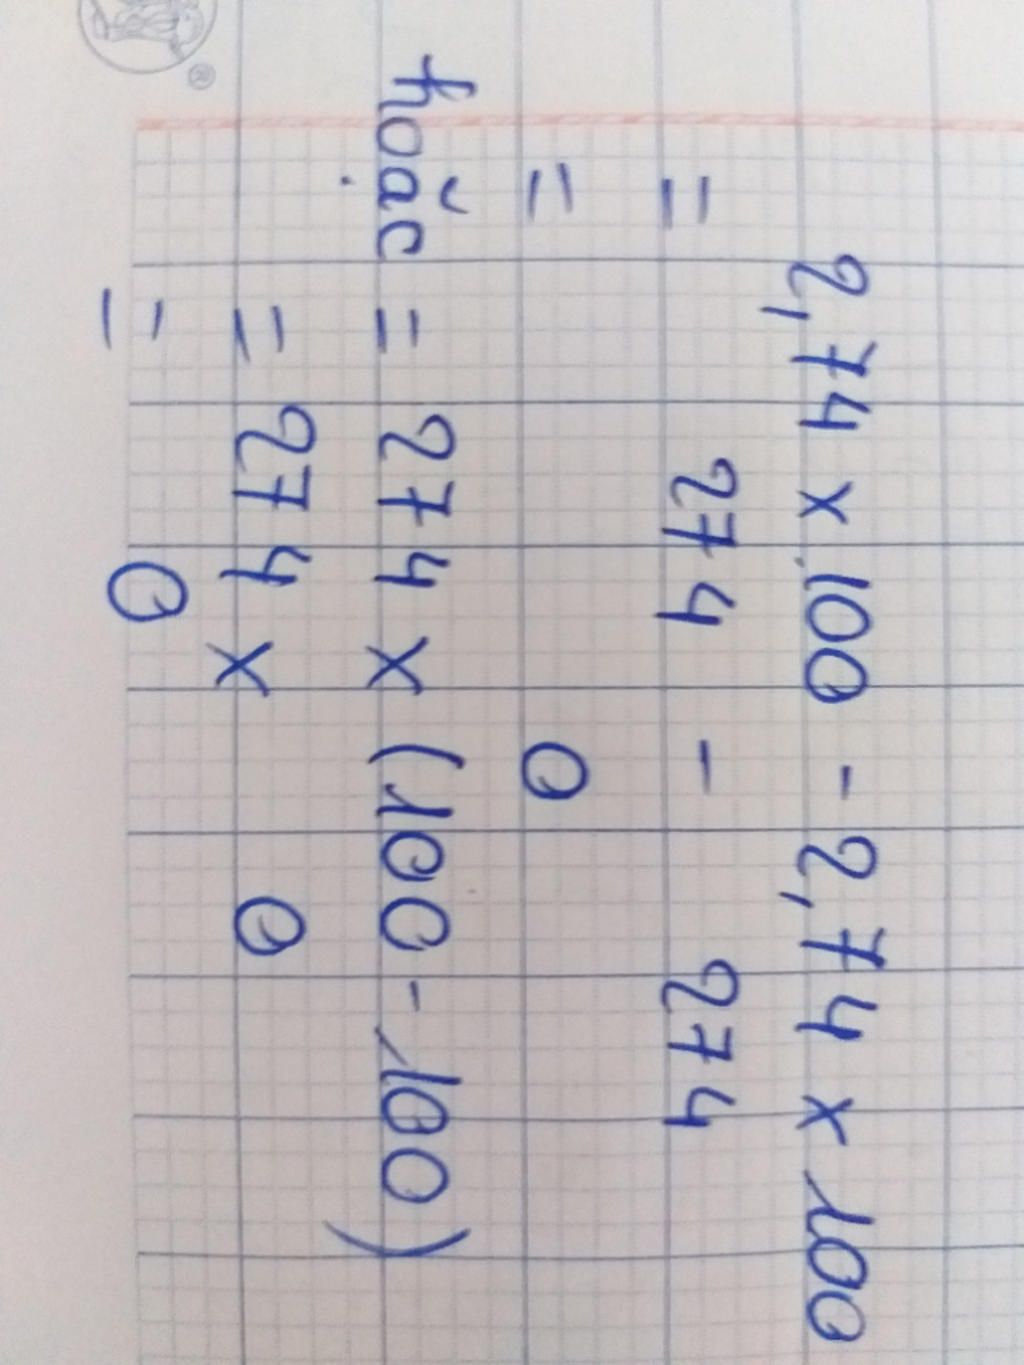 2,74 x 100 - 2,74 x 100
= 274 - 274
= 0
hoặc = 274 x (100 - 100)
= 274 x 0
= 0
®